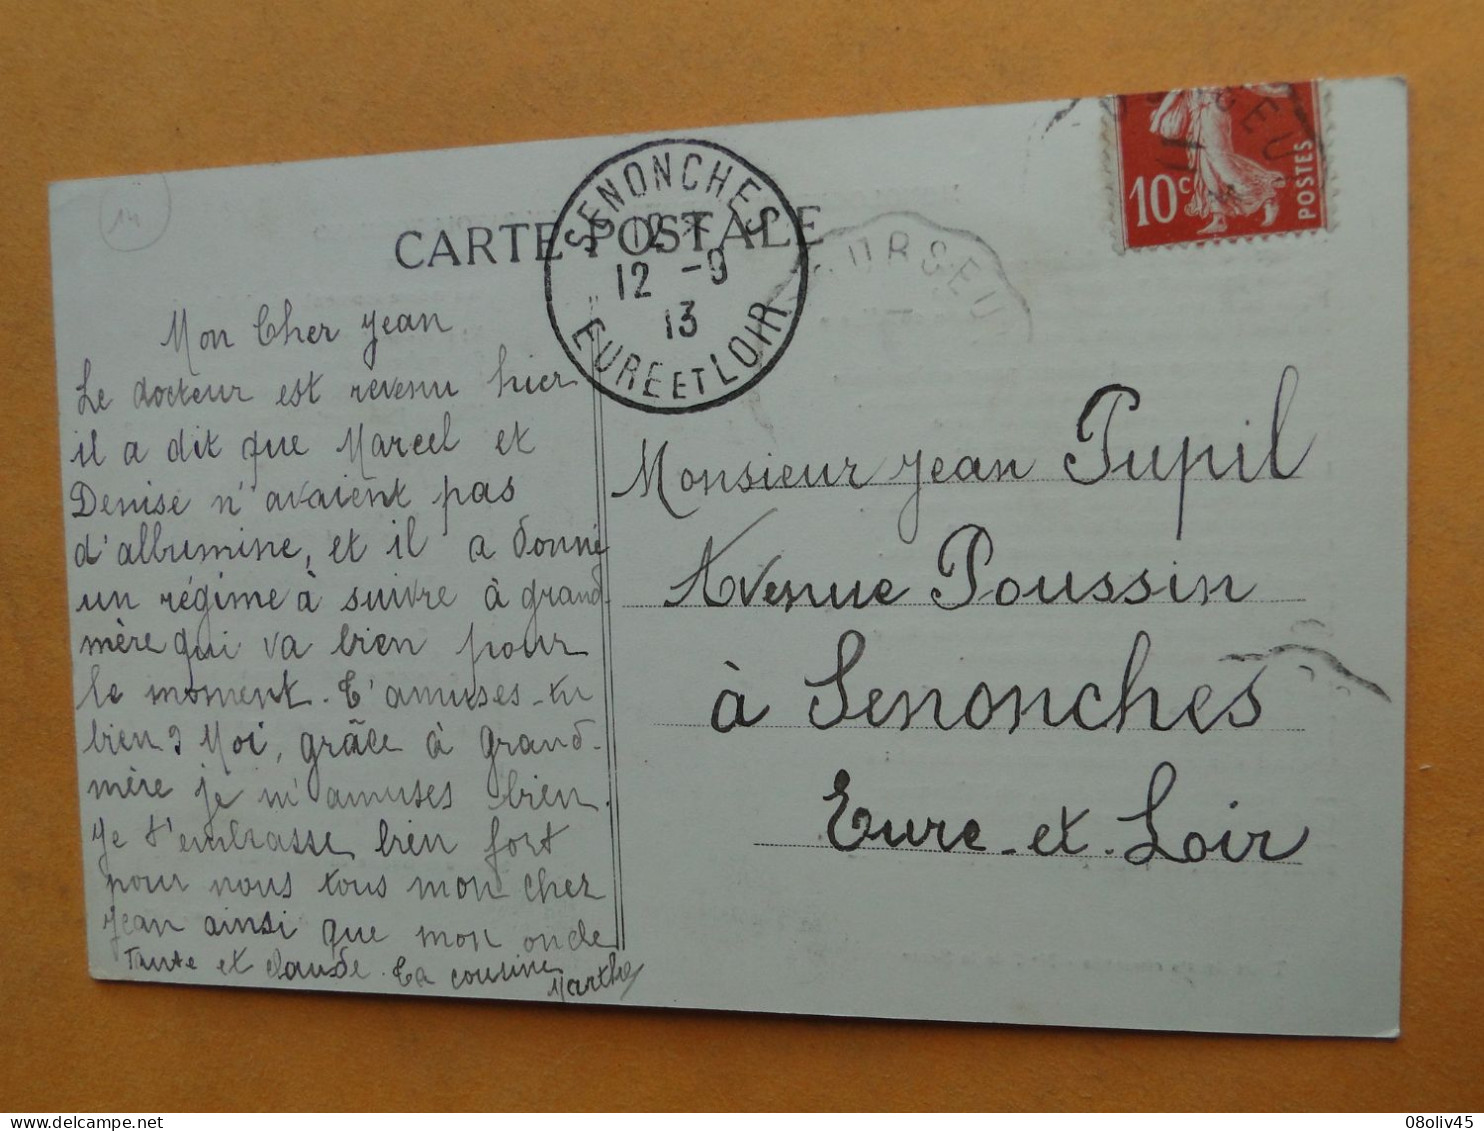 14
CARTE POSTALE
SENONCHES
12 *
12 -9
13
EURE ET LOIR
10c
POSTES
Mon Cher Jean
Le docteur est revenu hier
il a dit que Marcel et
Denise n'avaient pas
d'albumine, et il a donné
un régime à suivre à grand-
mère qui va bien pour
le moment. T'amuses-tu
bien? Moi, grâce à grand-
mère je m'amuses bien.
Je t'embrasse bien fort
pour nous tous mon cher
Jean ainsi que mon oncle
Tante et Claude. Ta cousine
Marthe
Monsieur Jean Pupil
Avenue Poussin
à Senonches
Eure-et-Loir
08oliv45